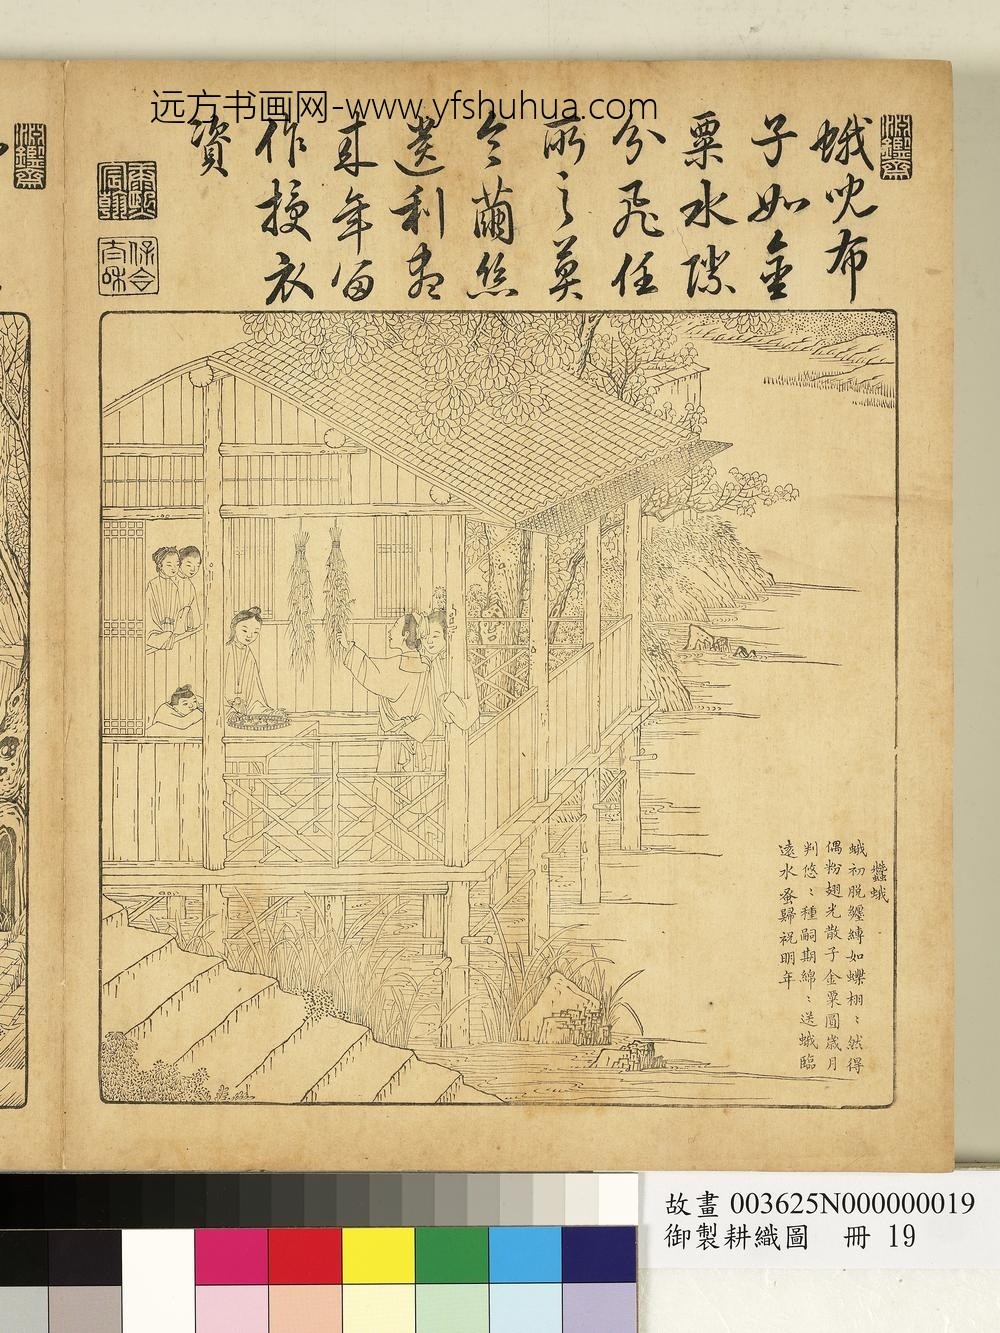 远方书画网-www.yfshuhua.com
淵鑒齋
蛾兒布
子如金
粟水際
分飛任
所之莫
令繭絲
遺利盡
來年留
作授衣
資
康熙宸翰
保合太和
淵鑒齋
蠶蛾
蛾初脫纏縛如蝶栩〻然得
偶粉翅光散子金粟圓歲月
判悠〻種嗣期綿〻送蛾臨
遠水蚕歸祝明年
故畫 003625N000000019
御製耕織圖 冊 19